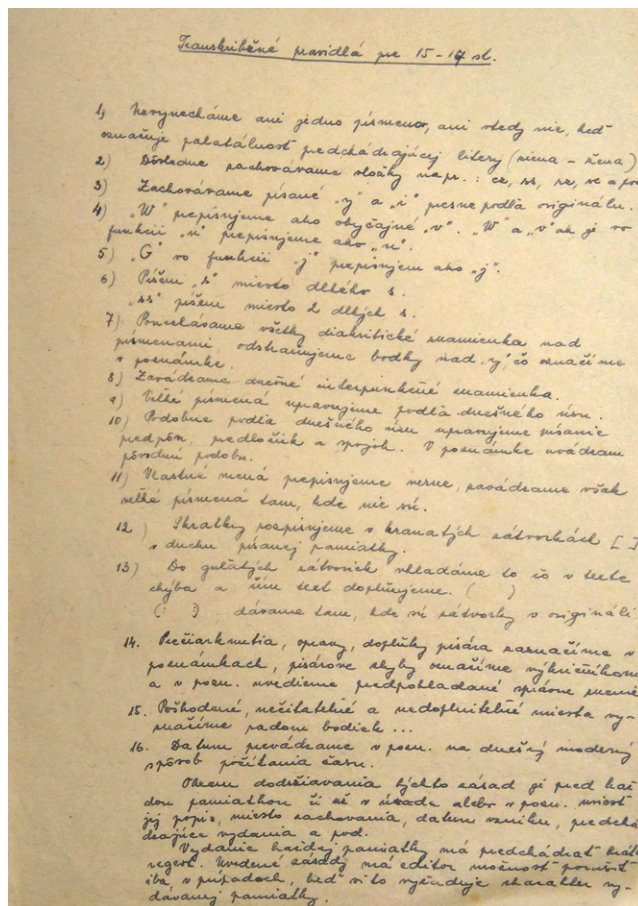 Transkribčné pravidlá pre 15-17 st.
1) Nevynecháme ani jedno písmeno, ani vtedy nie, keď
označuje palatálnosť predchádzajúcej litery (niena - žena)
2) Dôsledne zachovávame zložky napr.: cz, ss, rz, sc a pod
3) Zachovávame písané "y" a "i" presne podľa originálu.
4) "W" prepisujeme ako obyčajné "v". "W" a "v" ak je vo
funkcii "u" prepisujeme ako "u".
5) "G" vo funkcii "j" prepisujem ako "j".
6) Píšem "s" miesto dlhého s.
"ss" píšem miesto 2 dlhých s.
7) Ponechávame všetky diakritické znamienka nad
písmenami, odstraňujeme bodky nad "y" čo označíme
v poznámke.
8) Zavádzame dnešné interpunkčné znamienka.
9) Veľké písmená upravujeme podľa dnešného úzu.
10) Podobne podľa dnešného úzu upravujeme písanie
predpôn, predložiek a spojok. V poznámke uvádzam
pôvodnú podobu.
11) Vlastné mená prepisujeme verne, zavádzame však
veľké písmená tam, kde nie sú.
12) Skratky rozpisujeme v hranatých zátvorkách [ ]
v duchu písanej pamiatky.
13) Do guľatých zátvoriek vkladáme to čo v texte
chýba a čím text doplňujeme. ( )
(: :) dávame tam, kde sú zátvorky v origináli
14. Prečiarknutia, opravy, doplňky pisára zaznačíme v
poznámkach, pisárove chyby označíme výkričníkom
a v pozn. uvedieme predpohladané správne znenie
15. Poškodené, nečitateľné a nedoplniteľné miesta vy-
značíme radom bodiek ...
16. Datum prevádzame v pozn. na dnešný moderný
spôsob počítania času.
Okrem dodržiavania týchto zásad je pred kaž
dou pamiatkou či už v úvode alebo v pozn. uviesť
jej popis, miesto zachovania, datum vzniku, predchá
dzajúce vydania a pod.
Vydanie každej pamiatky má predchádzať krát
regest. Uvedené zásady má editor možnosť porušiť
iba v prípadoch, keď si to vyžaduje charakter vy-
dávanej pamiatky.